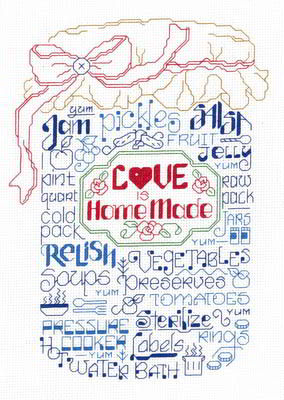 yum
Jam pickles SALSA
FRUIT
JELLY
YUM
PINT
quart
cold
pack
LOVE
IS
HomeMade
RAW
pack
JARS
YUM
RELISH VEGETABLES
YUM
Soups preserves
TOMATOES
YUM
PRESSURE Sterilize
COOKER Labels RINGS
YUM
HOT YUM
WATER BATH